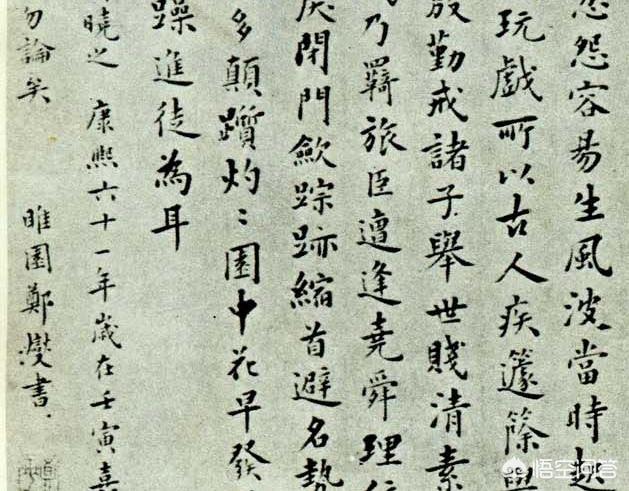 怨容易生風波當時
玩戲所以古人疾籧篨
勤戒諸子舉世賤清素
乃羇旅臣遭逢堯舜理
閉門斂踪跡縮首避名勢
多顛躓灼灼園中花早發
躁進徒為耳
曉之 康熙六十一年歲在壬寅
勿論矣
睢園鄭燮書
悟空问答